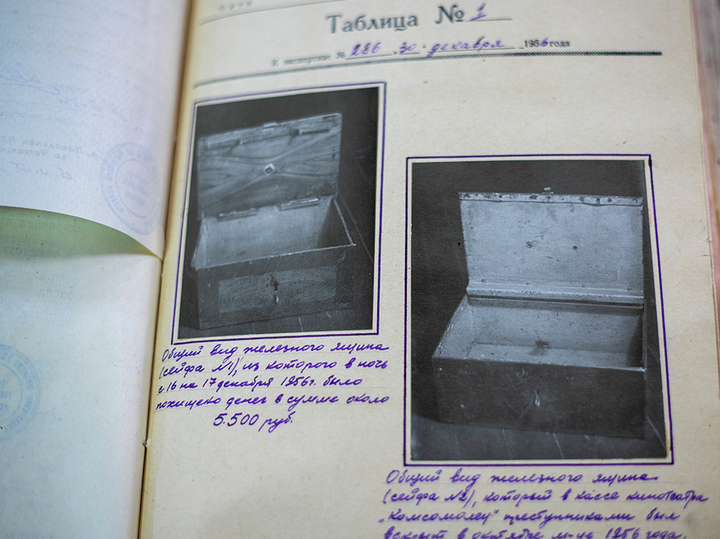 Таблица № 1
К экспертизе № 286 30 декабря 1956 года
Общий вид железного ящика
(сейфа №1), из которого в ночь
с 16 на 17 декабря 1956 г. было
похищено денег в сумме около
5.500 руб.
Общий вид железного ящика
(сейфа №2), который в кассе кинотеатра
"Комсомолец" преступниками был
вскрыт в октябре м-це 1956 года.